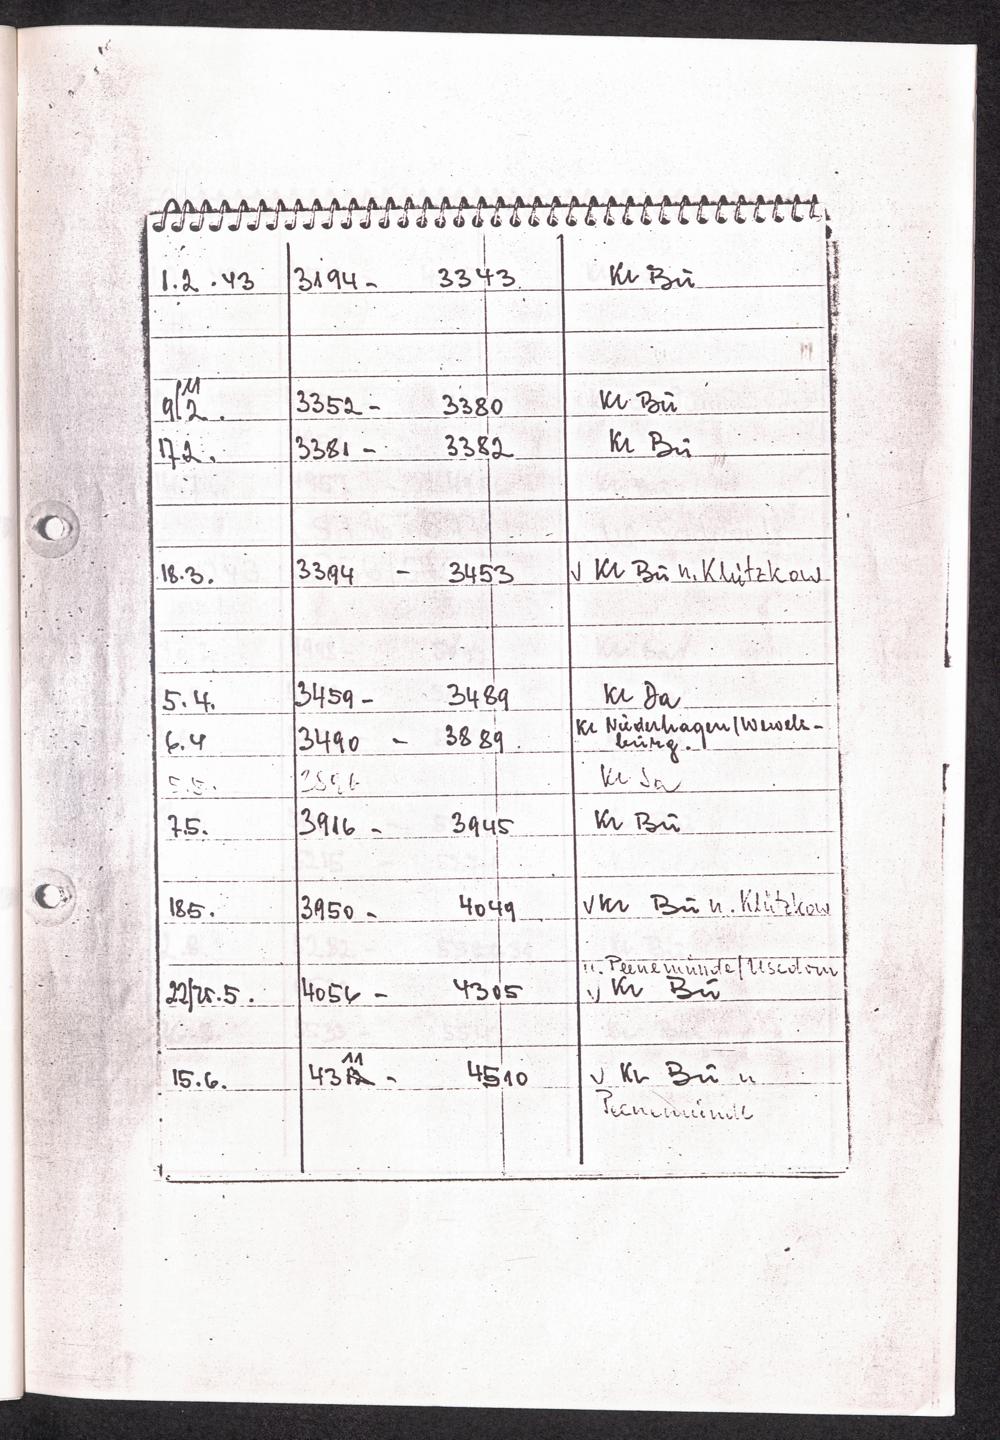 1.2.43 3194 - 3343 Kl Bu
11
9/2. 3352 - 3380 Kl Bu
17.2. 3381 - 3382 Kl Bu
18.3. 3394 - 3453 v Kl Bu n. Klützkow
5.4. 3459 - 3489 Kl Da
6.4 3490 - 3889. Kl Niederhagen/Wewels-
burg.
5.5. Kl Da
7.5. 3916 - 3945 Kl Bu
185. 3950 - 4049 v Kl Bu n. Klützkow
n. Peenemünde/Usedom
22/25.5. 4056 - 4305 v Kl Bu
11
15.6. 43 - 4510 v Kl Bu n
Peenemünde